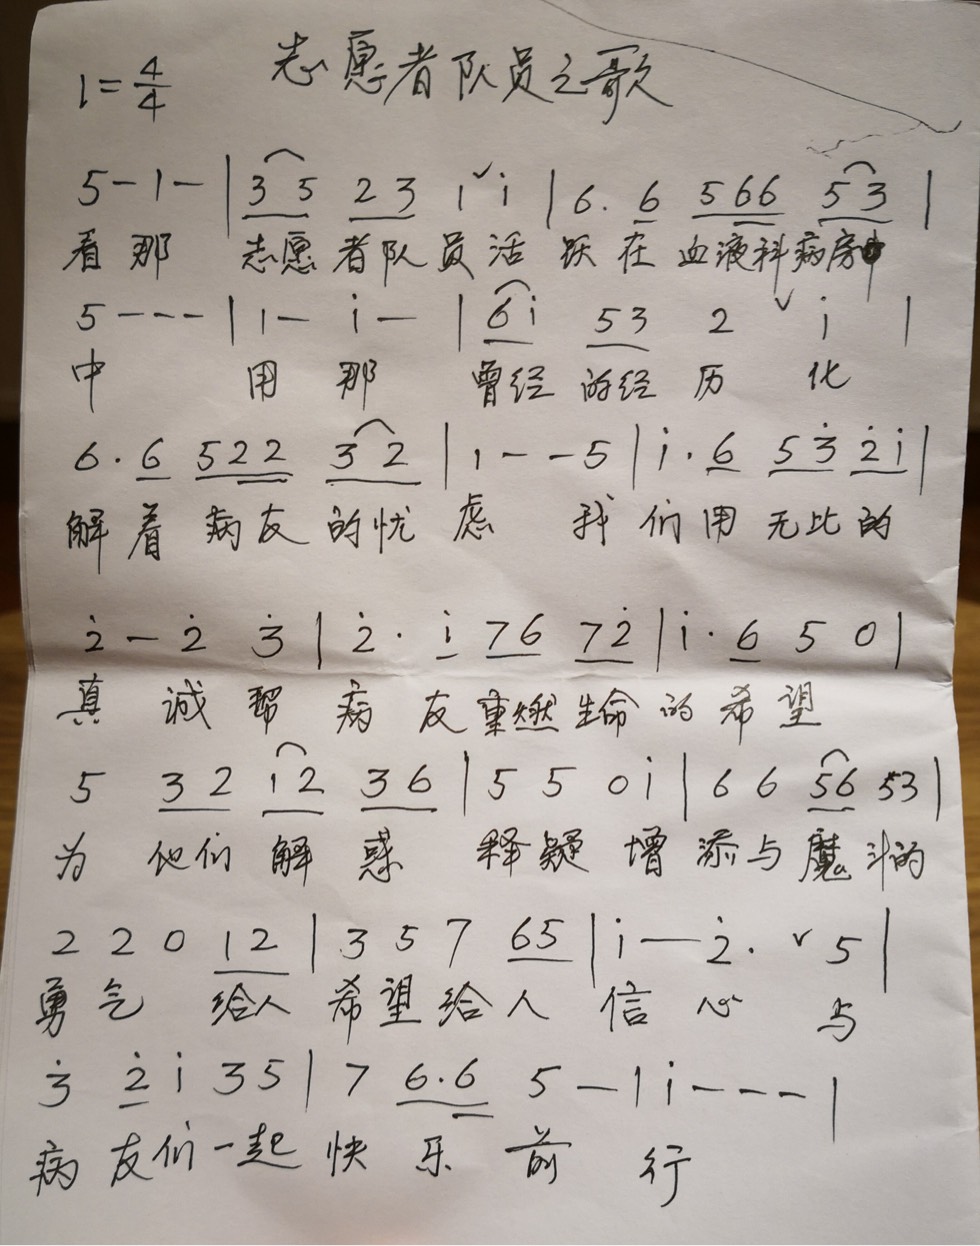 志愿者队员之歌
1=4/4
5-1-|3 5 2 3 1ˇi̇|6. 6 5 6 6 5 3|
看那 志愿者队员活跃在血液科病房
5---|1- i̇-|6 i̇ 5 3 2 ˇ i̇|
中 用 那 曾经的经历 化
6. 6 5 2 2 3 2|1--5|i̇. 6 5 3̇ 2̇ i̇|
解着病友的忧虑 我们用无比的
2̇-2̇ 3̇|2̇. i̇ 7 6 7 2̇|i̇. 6 5 0|
真诚帮病友重燃生命的希望
5 3 2 1 2 3 6|5 5 0 i̇|6 6 5 6 5 3|
为他们解惑 释疑 增添与魔斗的
2 2 0 1 2|3 5 7 6 5|i̇—2̇. ˇ 5|
勇气 给人希望给人信心 与
3̇ 2̇ i̇ 3 5|7 6. 6 5-|i̇---|
病友们一起快乐前行